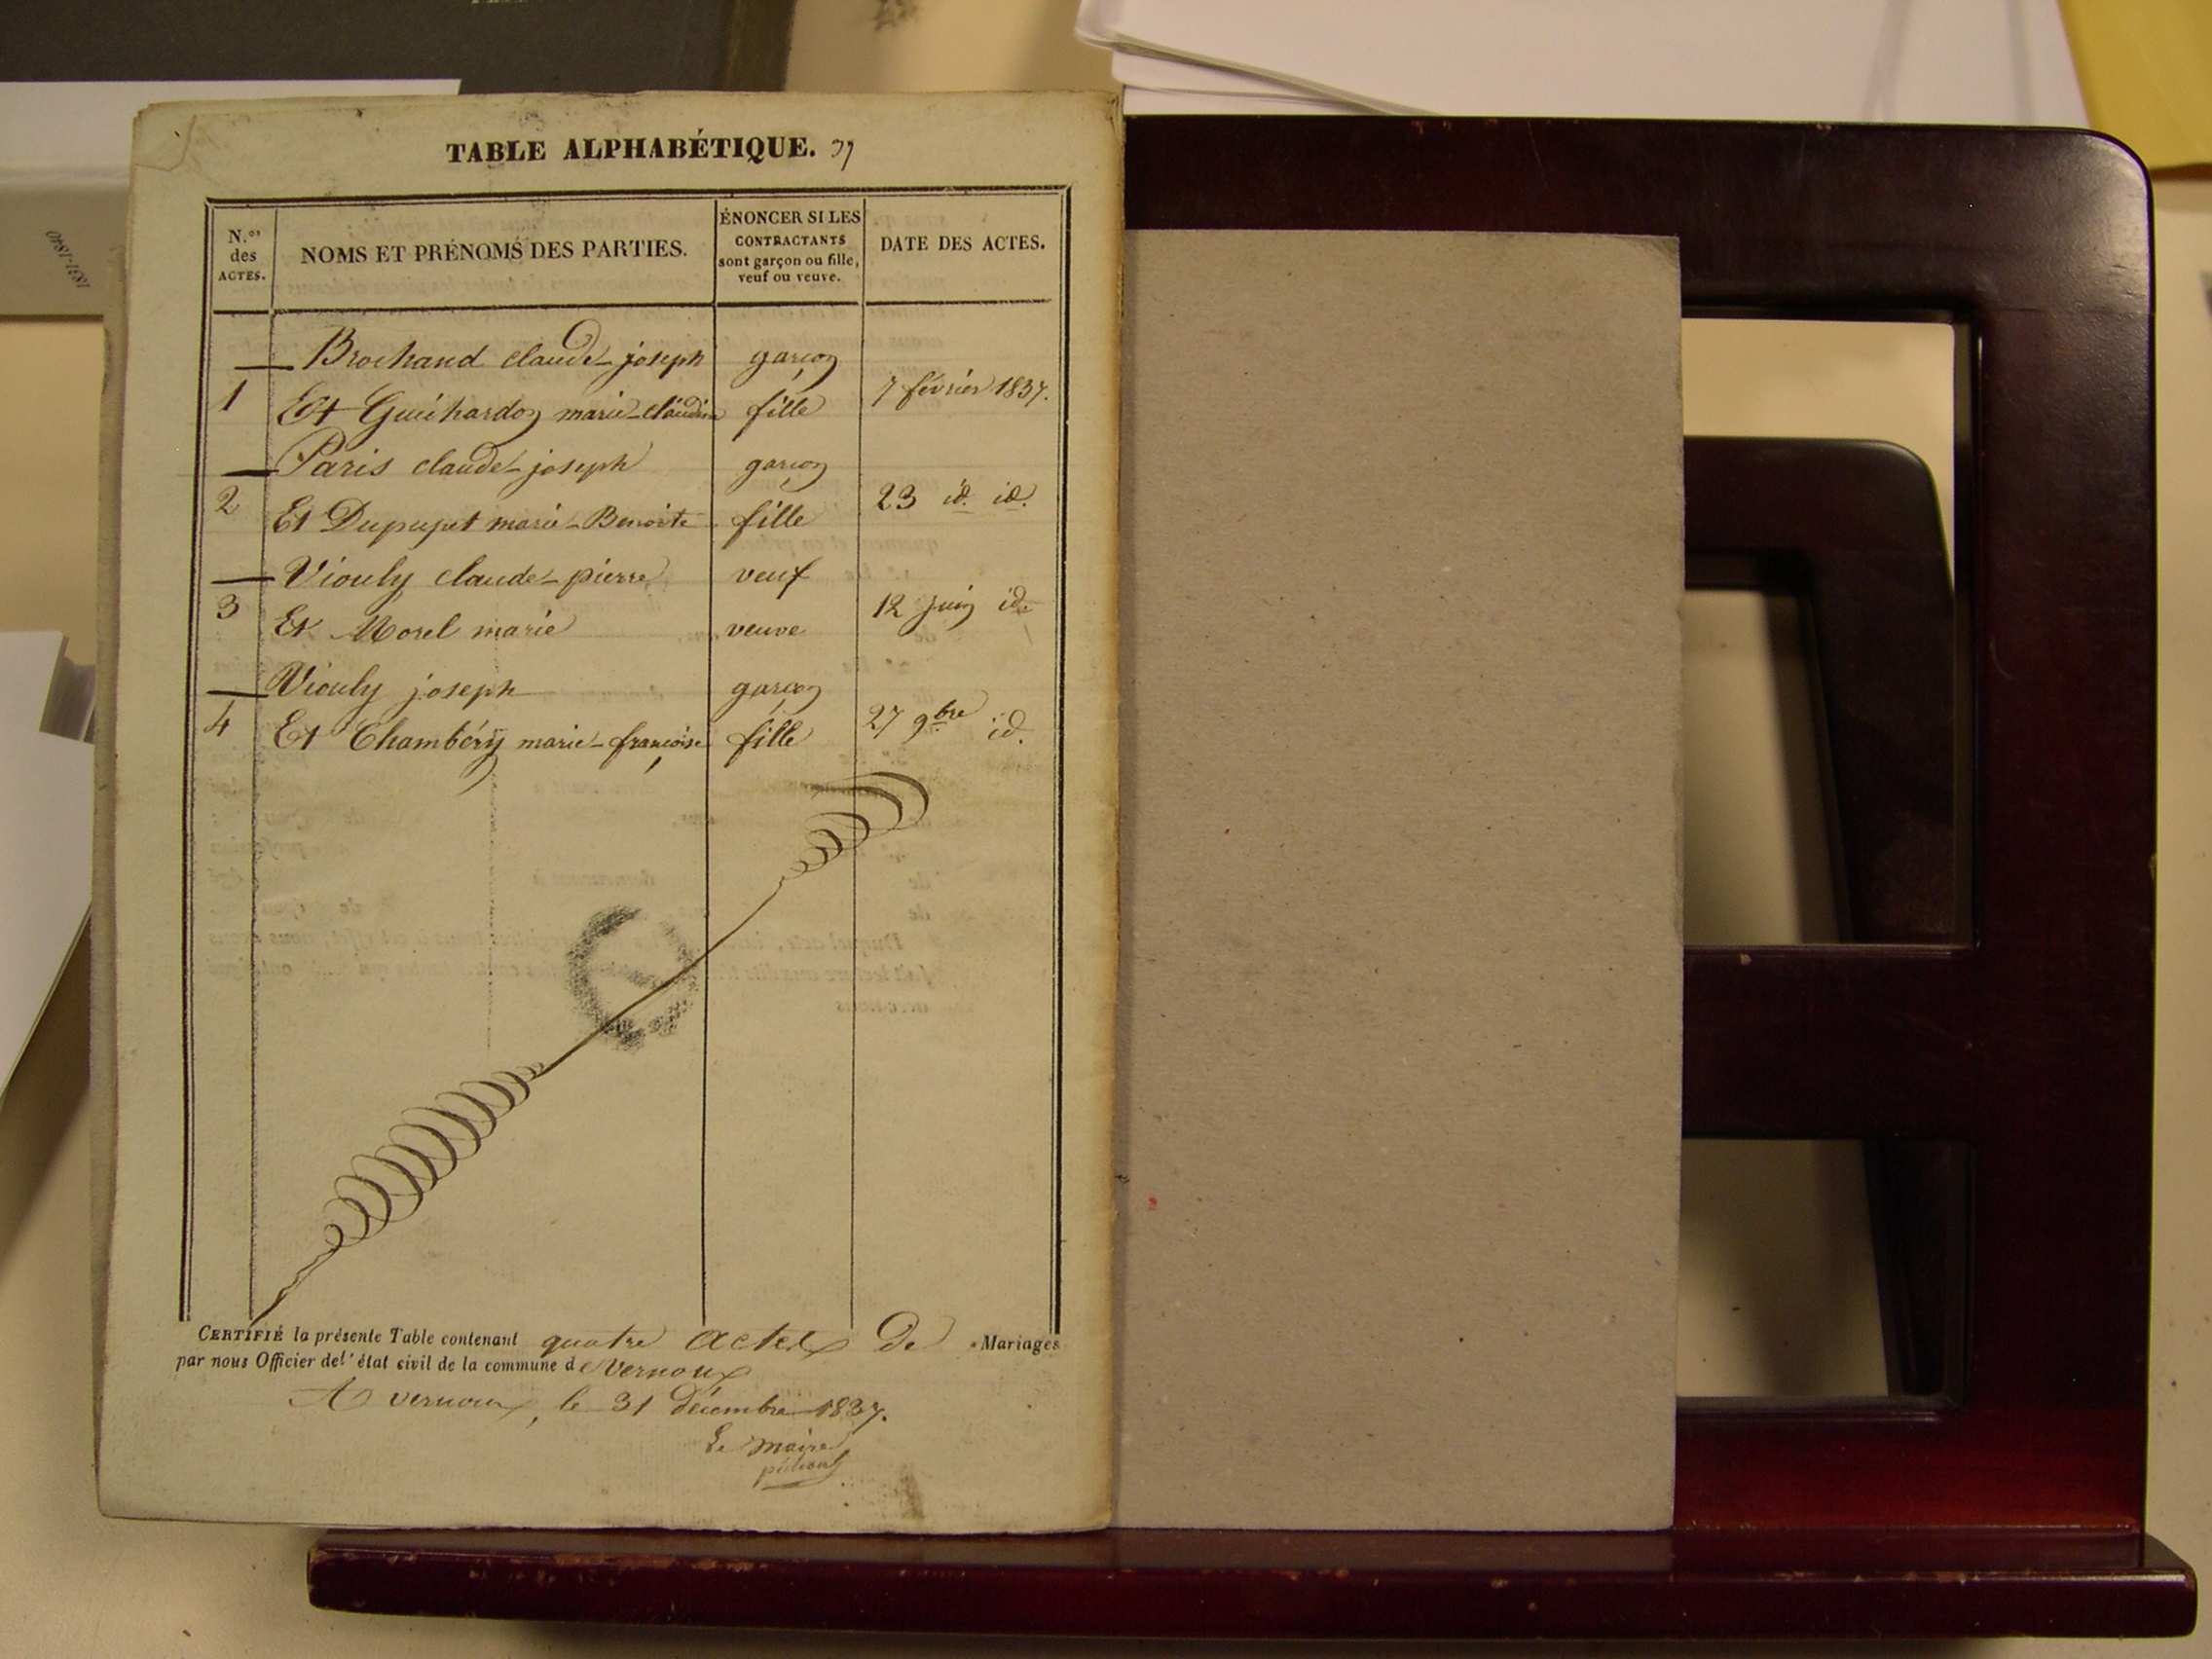 TABLE ALPHABÉTIQUE. 37
N.os des ACTES.
NOMS ET PRÉNOMS DES PARTIES.
ÉNONCER SI LES CONTRACTANTS sont garçon ou fille, veuf ou veuve.
DATE DES ACTES.
Brochand claude-joseph garçon
1 7 février 1837.
Et Guichardon marie-claudine fille
Paris claude-joseph garçon
2 23 id. id.
Et Dupupet marie-Benoite fille
Viouly claude-pierre veuf
3 12 juin id.
Et Morel marie veuve
Viouly joseph garçon
4 27 9bre id.
Et Chambéry marie-françoise fille
CERTIFIÉ la présente Table contenant quatre actes de Mariages
par nous Officier de l'état civil de la commune de Vernoux
A vernoux, le 31 décembre 1837.
Le maire
1831-1840